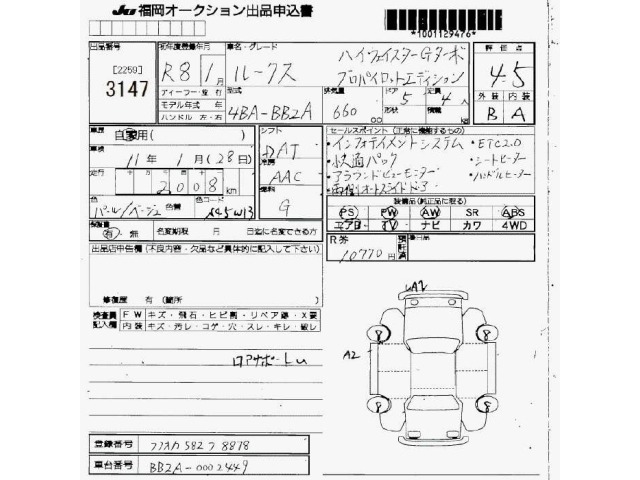 JU 福岡オークション出品申込書
*1001129476*
出品番号
[2259]
3147
初年度登録年月
R8年 1月
ディーラー・並行
モデル年式 年
ハンドル 左・右
車名・グレード
ルークス
ハイウェイスターGターボ
プロパイロットエディション
型式
4BA-BB2A
排気量
660 cc
ドア
5
定員
4人
積載
kg
評価点
4.5
外装 内装
B A
車歴
自家用( )
車検
11年 1月(28日)
走行
十 万 千 百 十
2008km
色
パール/ベージュ
色替
色コード
シフト
DAT
冷房
AAC
燃料
G
セールスポイント(正常に機能するもの)
・インフォテイメントシステム
・ETC2.0
・快適パック
・シートヒーター
・アラウンドビューモニター
・ハンドルヒーター
・両側オートスライドドア
装備品(純正品に限る)
PS PW AW SR ABS
エアB TV ナビ カワ 4WD
保証書
有・無
名変期限 年 月 日迄に名変できる方
R券
10770円
預託済
出品店申告欄(不良内容・欠品など具体的に記入して下さい)
修復歴 有(箇所 )
検査員記入欄
FW キズ・飛石・ヒビ割・リペア跡・X要
内装 キズ・汚レ・コゲ・穴・スレ・キレ・破レ
ロアサポートU
A2
A2
登録番号
フクオカ 582 フ 8878
車台番号
BB2A-0002449